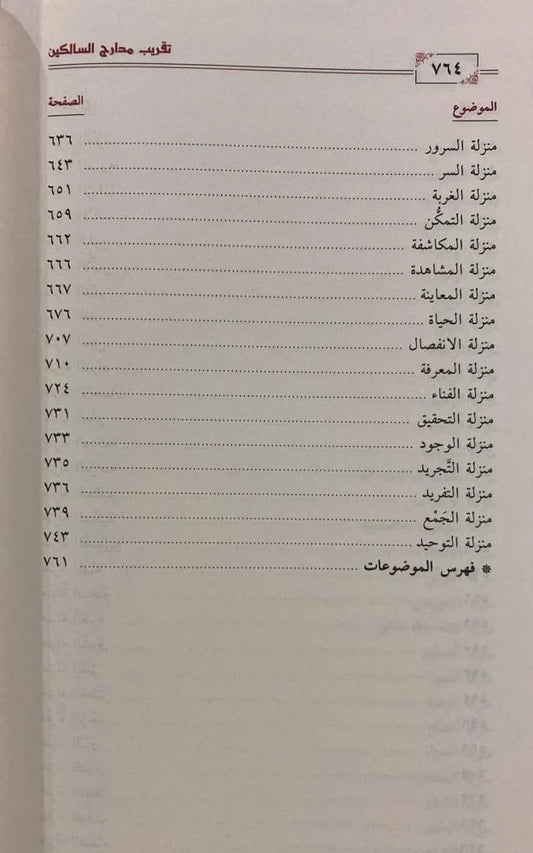 تقريب مدارج السالكين
٧٦٤
الموضوع الصفحة
منزلة السرور ........ ٦٣٦
منزلة السر ........ ٦٤٣
منزلة الغربة ........ ٦٥١
منزلة التمكُّن ........ ٦٥٩
منزلة المكاشفة ........ ٦٦٢
منزلة المشاهدة ........ ٦٦٦
منزلة المعاينة ........ ٦٦٧
منزلة الحياة ........ ٦٧٦
منزلة الانفصال ........ ٧٠٧
منزلة المعرفة ........ ٧١٠
منزلة الفناء ........ ٧٢٤
منزلة التحقيق ........ ٧٣١
منزلة الوجود ........ ٧٣٣
منزلة التَّجريد ........ ٧٣٥
منزلة التفريد ........ ٧٣٦
منزلة الجَمْع ........ ٧٣٩
منزلة التوحيد ........ ٧٤٣
* فهرس الموضوعات ........ ٧٦١